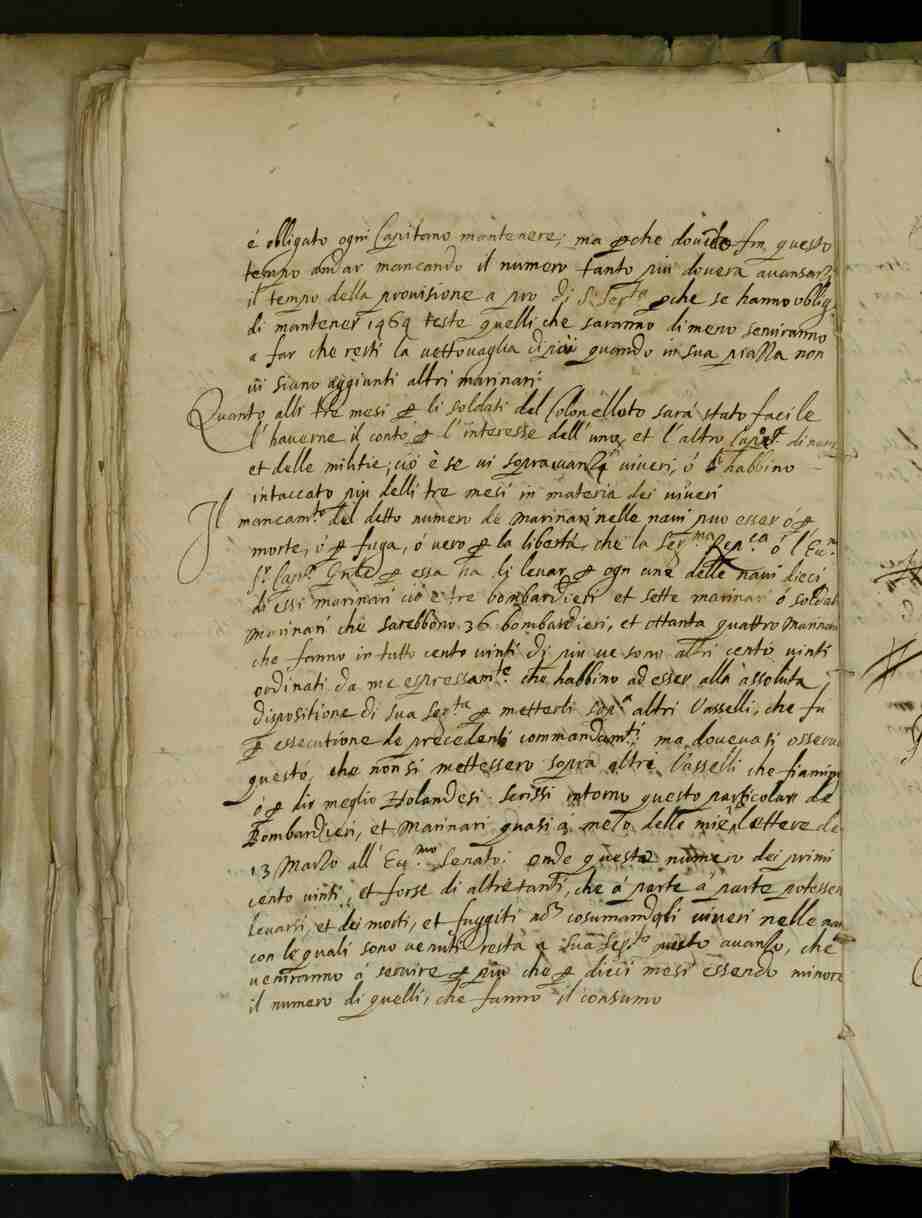 é obligato ogni Capitano mantenere; ma perche dovendo fra questo
tempo andar mancando il numero tanto piu dovera avansarsi
il tempo della provisione a pro di S. Ser.tà perche se hanno oblig.
di mantener 1969 teste quelli che saranno di meno serviranno
a far che resti la vettovaglia di più quando in sua piazza non
vi siano aggiunti altri marinari.
Quanto alli tre mesi per li soldati del Colonello sarà stato facile
l'haverne il conto per l'interesse dell'uno, et l'altro Cap.
et delle militie; ciò è se vi sopravanza viveri, ó habbino
intaccato piu delli tre mesi in materia dei viveri
Il mancam.to del detto numero de Marinari nelle navi puo esser ó per
morte, ó per fuga, ó vero per la libertà, che la Ser.ma Rep.ca ó l'Ecc.mo
S.r Cap.n G̃nle per essa ha di levar per ogn una delle navi dieci
di essi marinari ciò è tre bombardieri et sette marinari ó soldati
Marinari che sarebbono 36 bombardieri, et ottanta quattro Marinari
che fanno in tutto cento vinti di piu ve sono altri cento vinti
ordinati da me espressam.te che habbino ad esser alla assoluta
dispositione di sua Ser.tà per metterli sop.a altri Vasselli, che fu
per essecutione de precedenti commandam.ti ma dovevasi osservar
questo, che non si mettessero sopra altre Vasselli che fiamin
ó per dir meglio Holandesi. Scrissi intorno questo particolar de
Bombardieri, et Marinari quasi à metà delle mie lettere de
13 Marzo all' Ecc.mo Senato: onde questo numero dei primi
cento vinti, et forse di altretanti, che á parte á parte potessero
levarsi, et dei morti, et fuggiti nõ cosumandosi viveri nelle navi
con le quali sono venuti resta a Sua Ser.tà questo avanzo, che
veniranno a servire per piu che per dieci mesi essendo minore
il numero di quelli, che fanno il consumo